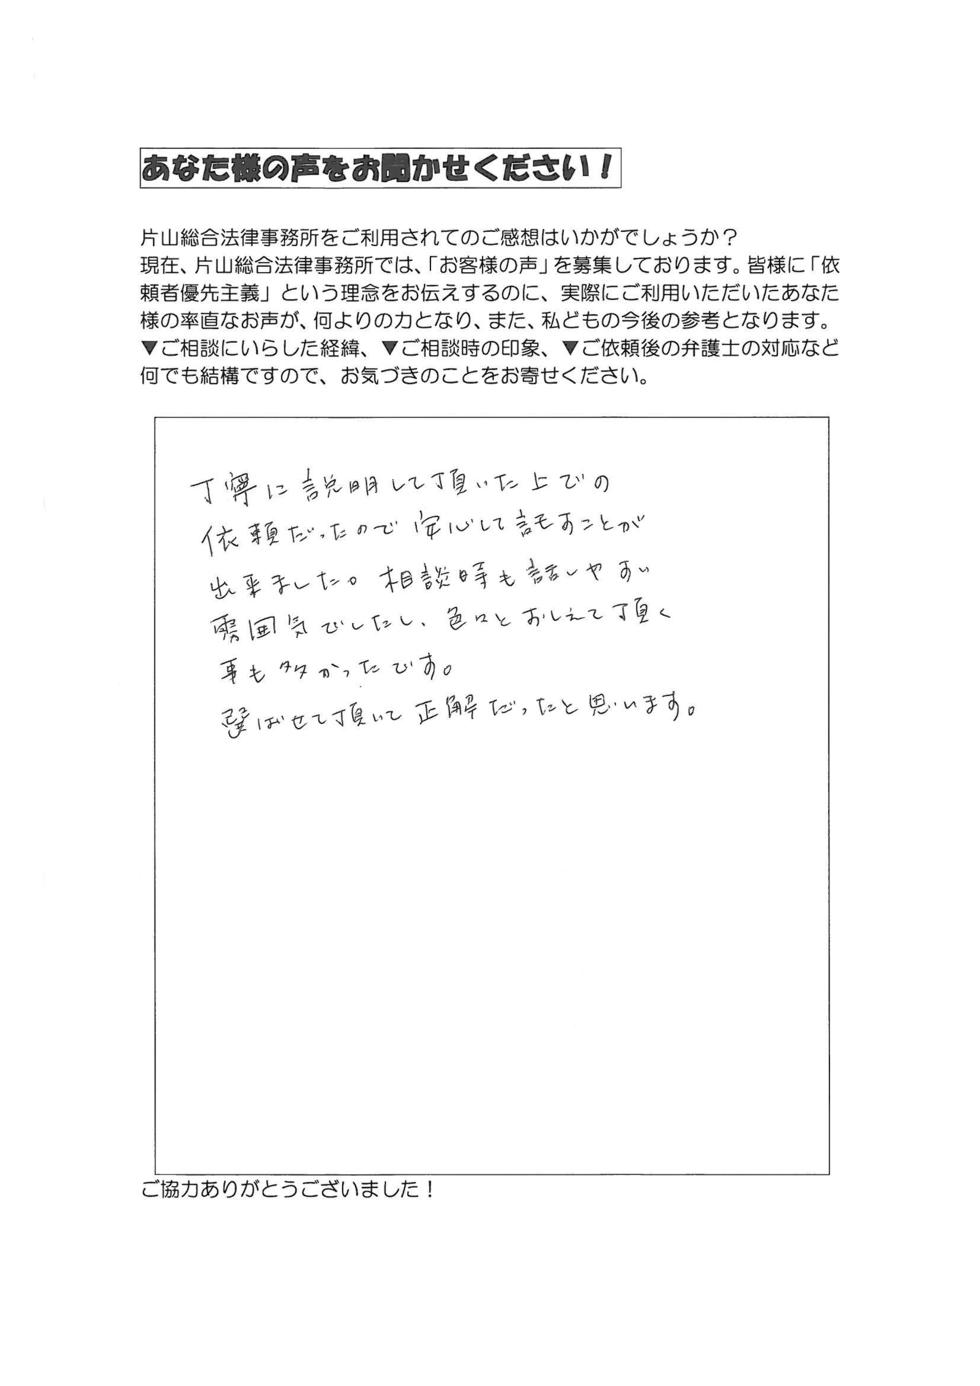 あなた様の声をお聞かせください！
片山総合法律事務所をご利用されてのご感想はいかがでしょうか？
現在、片山総合法律事務所では、「お客様の声」を募集しております。皆様に「依
頼者優先主義」という理念をお伝えするのに、実際にご利用いただいたあなた
様の率直なお声が、何よりの力となり、また、私どもの今後の参考となります。
▼ご相談にいらした経緯、▼ご相談時の印象、▼ご依頼後の弁護士の対応など
何でも結構ですので、お気づきのことをお寄せください。
丁寧に説明して頂いた上での
依頼だったので安心して託すことが
出来ました。相談時も話しやすい
雰囲気でしたし、色々とおしえて頂く
事も多かったです。
選ばせて頂いて正解だったと思います。
ご協力ありがとうございました！